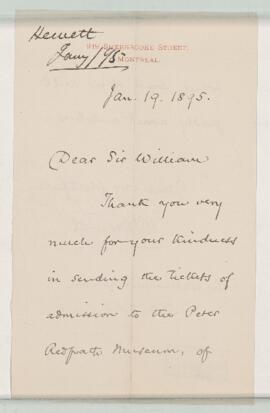 Hewett
Jany/95
SHERBROOKE STREET,
MONTREAL.
Jan. 19. 1895.
Dear Sir William
Thank you very
much for your kindness
in sending the tickets of
admission to the Peter
Redpath Museum, of